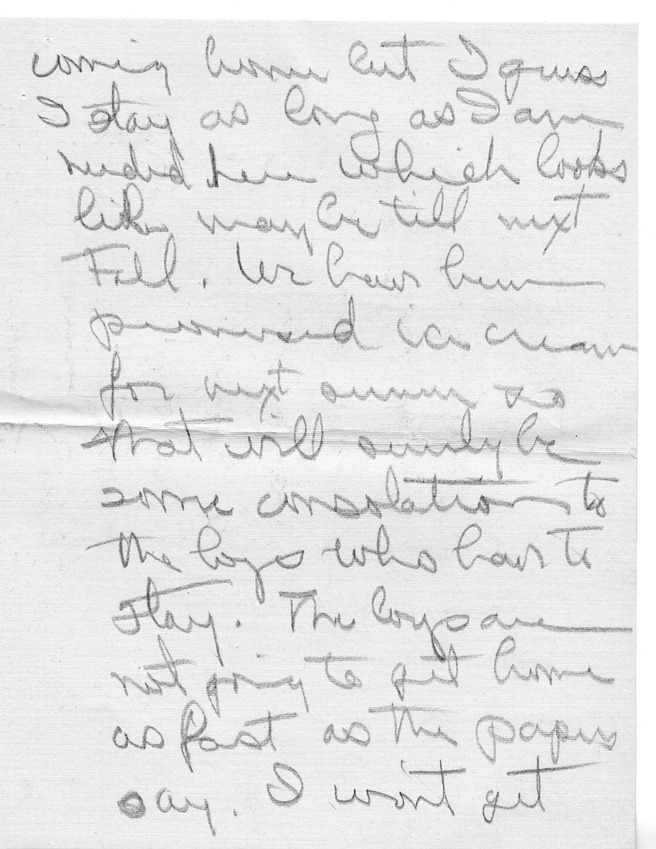 coming home but I guess
I stay as long as I am
needed here which looks
like may be till next
Fall. We have been
promised ice cream
for next summer so
that will surely be
some consolation to
the boys who have to
stay. The boys are
not going to get home
as fast as the papers
say. I won't get